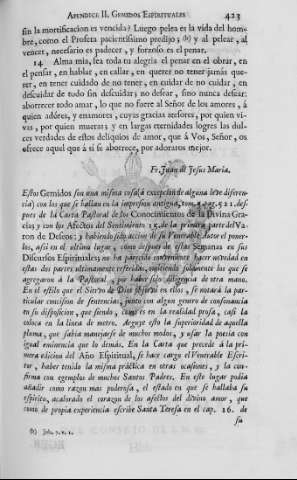 APENDICE II. GEMIDOS ESPIRITUALES 423
sin la mortificacion es vencida? Luego pelea es la vida del hom-
bre, como el Profeta pacientissimo predijo; (k) y al pelear, al
vencer, necesario es padecer, y forzoso es el penar.
14. Alma mia, sea toda tu alegria el penar en el obrar, en
el pensar, en hablar, en callar, en querer no tener jamás que-
rer, en tener cuidado de no tener, en cuidar de no cuidar, en
descuidar de todo sin descuidar; no desear, sino nunca desear:
aborrecer todo amar, lo que no fuere al Señor de los amores, á
quien adóres, y enamores, cuyas gracias atesores, por quien vi-
vas, por quien mueras; y en largas eternidades logres las dul-
ces verdades de estos deliquios de amor, que á Vos, Señor, os
ofrece aquel que á sí se aborrece, por adoraros mejor.
Fr. Juan de Jesus Maria.
Estos Gemidos son una misma cosa (á excepcion de alguna leve diferen-
cia) con los que se hallan en la impresion antigua, tom. pag. 521. des-
pues de la Carta Pastoral de los Conocimientos de la Divina Gra-
cia; y con los Afectos del Sentimiento 15. de la primera parte del Va-
ron de Deseos: y habiendo sido accion de su Venerable Autor el poner-
los, asi en el ultimo lugar, como despues de estas Semanas en sus
Discursos Espirituales; no ha parecido conveniente hacer novedad en
estas dos partes ultimamente referidas, omitiendo solamente los que se
agregaron á la Pastoral, por haber sido diligencia de otra mano.
En el estilo que el Siervo de Dios observó en ellos, se notará la par-
ticular concision de sentencias, junto con algun genero de consonancia
en su disposicion, que siendo, como es en la realidad prosa, casi la
coloca en la linea de metro. Arguye esto la superioridad de aquella
pluma, que sabia manejarse de muchos modos, y usar la poesía con
igual eminencia que lo demás. En la Carta que precede á la pri-
mera edicion del Año Espiritual, se hace cargo el Venerable Escri-
tor, haber tenido la misma práctica en otras ocasiones, y la con-
firma con egemplos de muchos Santos Padres. En este lugar podia
añadir como razon mas poderosa, el estado en que se hallaba su
espiritu, acalorado el corazon de los afectos del divino amor, que
como de propia experiencia escribe Santa Teresa en el cap. 16. de
su
(k) Job. 7. v. 1.